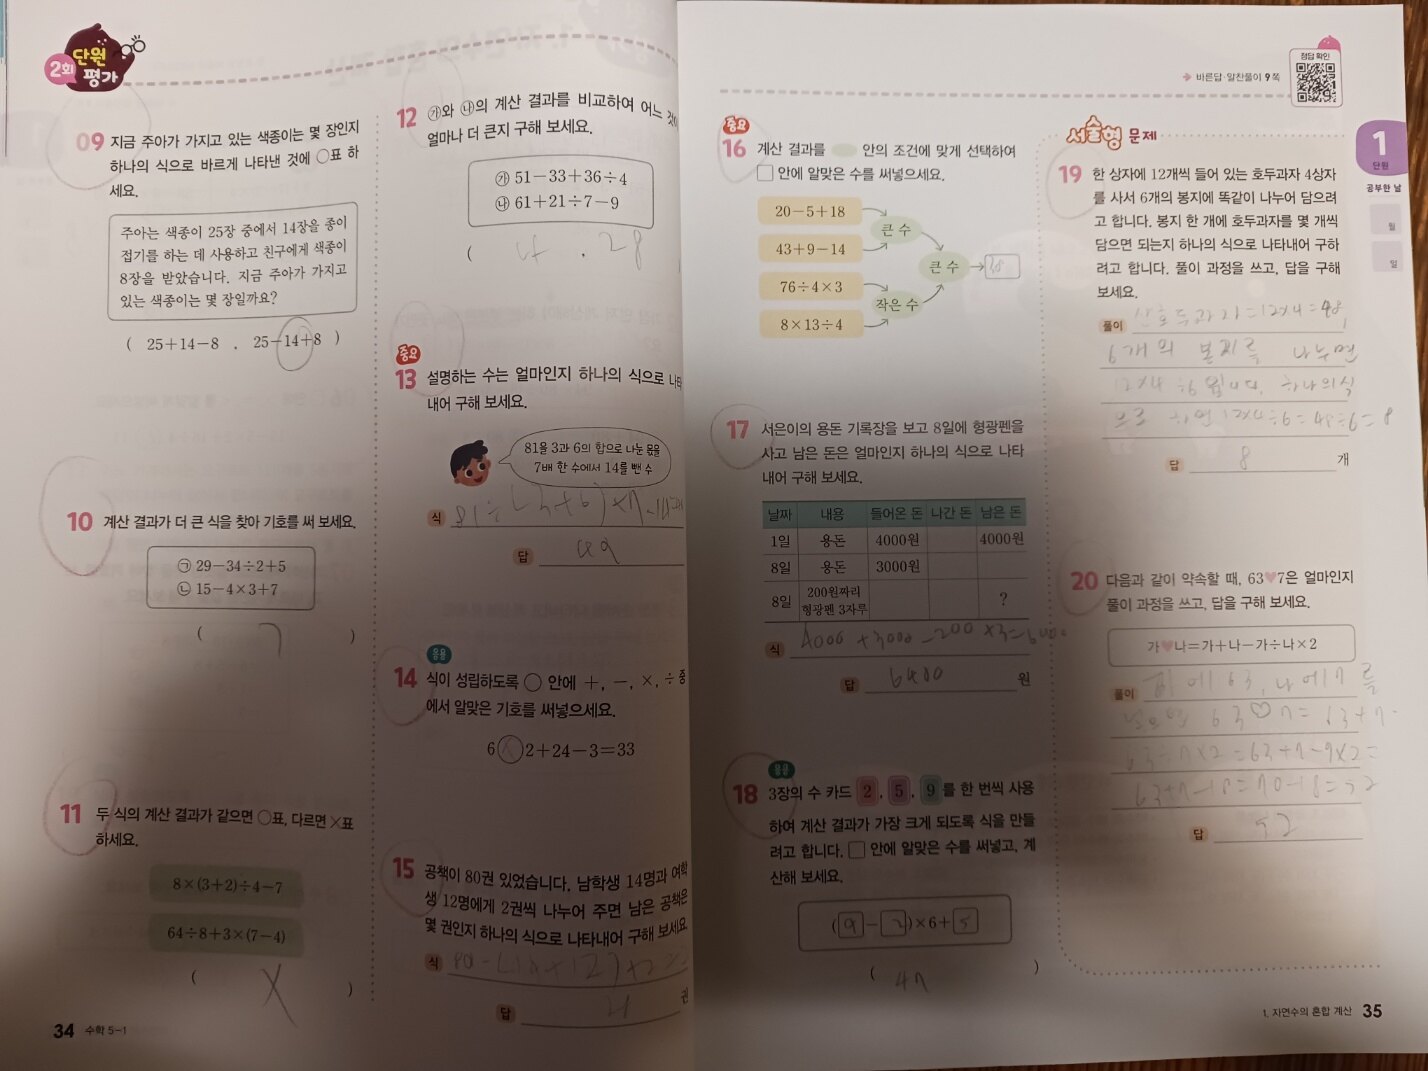 2회 단원 평가
09 지금 주아가 가지고 있는 색종이는 몇 장인지
하나의 식으로 바르게 나타낸 것에 ○표 하
세요.
주아는 색종이 25장 중에서 14장을 종이
접기를 하는 데 사용하고 친구에게 색종이
8장을 받았습니다. 지금 주아가 가지고
있는 색종이는 몇 장일까요?
( 25+14-8 , 25-14+8 )
10 계산 결과가 더 큰 식을 찾아 기호를 써 보세요.
㉠ 29-34÷2+5
㉡ 15-4×3+7
( ㄱ )
11 두 식의 계산 결과가 같으면 ○표, 다르면 ×표
하세요.
8×(3+2)÷4-7
64÷8+3×(7-4)
( X )
34 수학 5-1
12 ㉮와 ㉯의 계산 결과를 비교하여 어느 것이
얼마나 더 큰지 구해 보세요.
㉮ 51-33+36÷4
㉯ 61+21÷7-9
( , 28
중요
13 설명하는 수는 얼마인지 하나의 식으로 나타
내어 구해 보세요.
81을 3과 6의 합으로 나눈 몫을
7배 한 수에서 14를 뺀 수
식
답 49
응용
14 식이 성립하도록 ○ 안에 +, -, ×, ÷ 중
에서 알맞은 기호를 써넣으세요.
6 × 2+24-3=33
15 공책이 80권 있었습니다. 남학생 14명과 여학
생 12명에게 2권씩 나누어 주면 남은 공책은
몇 권인지 하나의 식으로 나타내어 구해 보세요.
식
답 권
바른답·알찬풀이 9쪽
정답 확인
중요
16 계산 결과를 안의 조건에 맞게 선택하여
□ 안에 알맞은 수를 써넣으세요.
20-5+18
43+9-14
76÷4×3
8×13÷4
큰 수
작은 수
큰 수
38
17 서은이의 용돈 기록장을 보고 8일에 형광펜을
사고 남은 돈은 얼마인지 하나의 식으로 나타
내어 구해 보세요.
날짜 내용 들어온 돈 나간 돈 남은 돈
1일 용돈 4000원 4000원
8일 용돈 3000원
8일 200원짜리 형광펜 3자루 ?
식 4000+3000-200×3=
답 6400 원
응용
18 3장의 수 카드 2, 5, 9를 한 번씩 사용
하여 계산 결과가 가장 크게 되도록 식을 만들
려고 합니다. □ 안에 알맞은 수를 써넣고, 계
산해 보세요.
(9-2)×6+5
( 47 )
서술형 문제
19 한 상자에 12개씩 들어 있는 호두과자 4상자
를 사서 6개의 봉지에 똑같이 나누어 담으려
고 합니다. 봉지 한 개에 호두과자를 몇 개씩
담으면 되는지 하나의 식으로 나타내어 구하
려고 합니다. 풀이 과정을 쓰고, 답을 구해
보세요.
풀이 산 호두과자=12×4=48,
6개의 봉지로 나누면
12×4÷6 입니다. 하나의 식
으로
답 8 개
20 다음과 같이 약속할 때, 63♥7은 얼마인지
풀이 과정을 쓰고, 답을 구해 보세요.
가♥나=가+나-가÷나×2
풀이 에 63, 나에 7 를
63♡7=63+7-
63÷7×2=63+7-9×2=
63+7-18=70-18=52
답 52
1 단원
공부한 날
월
일
1. 자연수의 혼합 계산 35